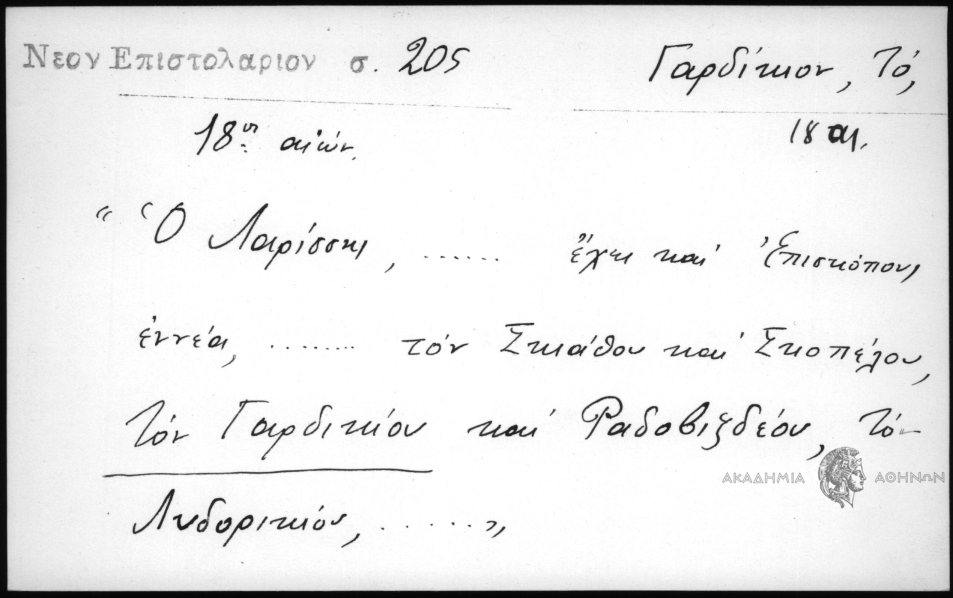 Νεον Επιστολαριον σ. 205
Γαρδίκιον, Τό,
18ος αἰών.
18 αι.
“ Ὁ Λαρίσσης, ...... ἔχει καὶ Ἐπισκόπους
ἐννέα, ........ τόν Σκιάθου καὶ Σκοπέλου,
τόν Γαρδικίου καὶ Ραδοβιζδίου, τόν
ΑΚΑΔΗΜΙΑ ΑΘΗΝΩΝ
Λυδορικίου, ...... „